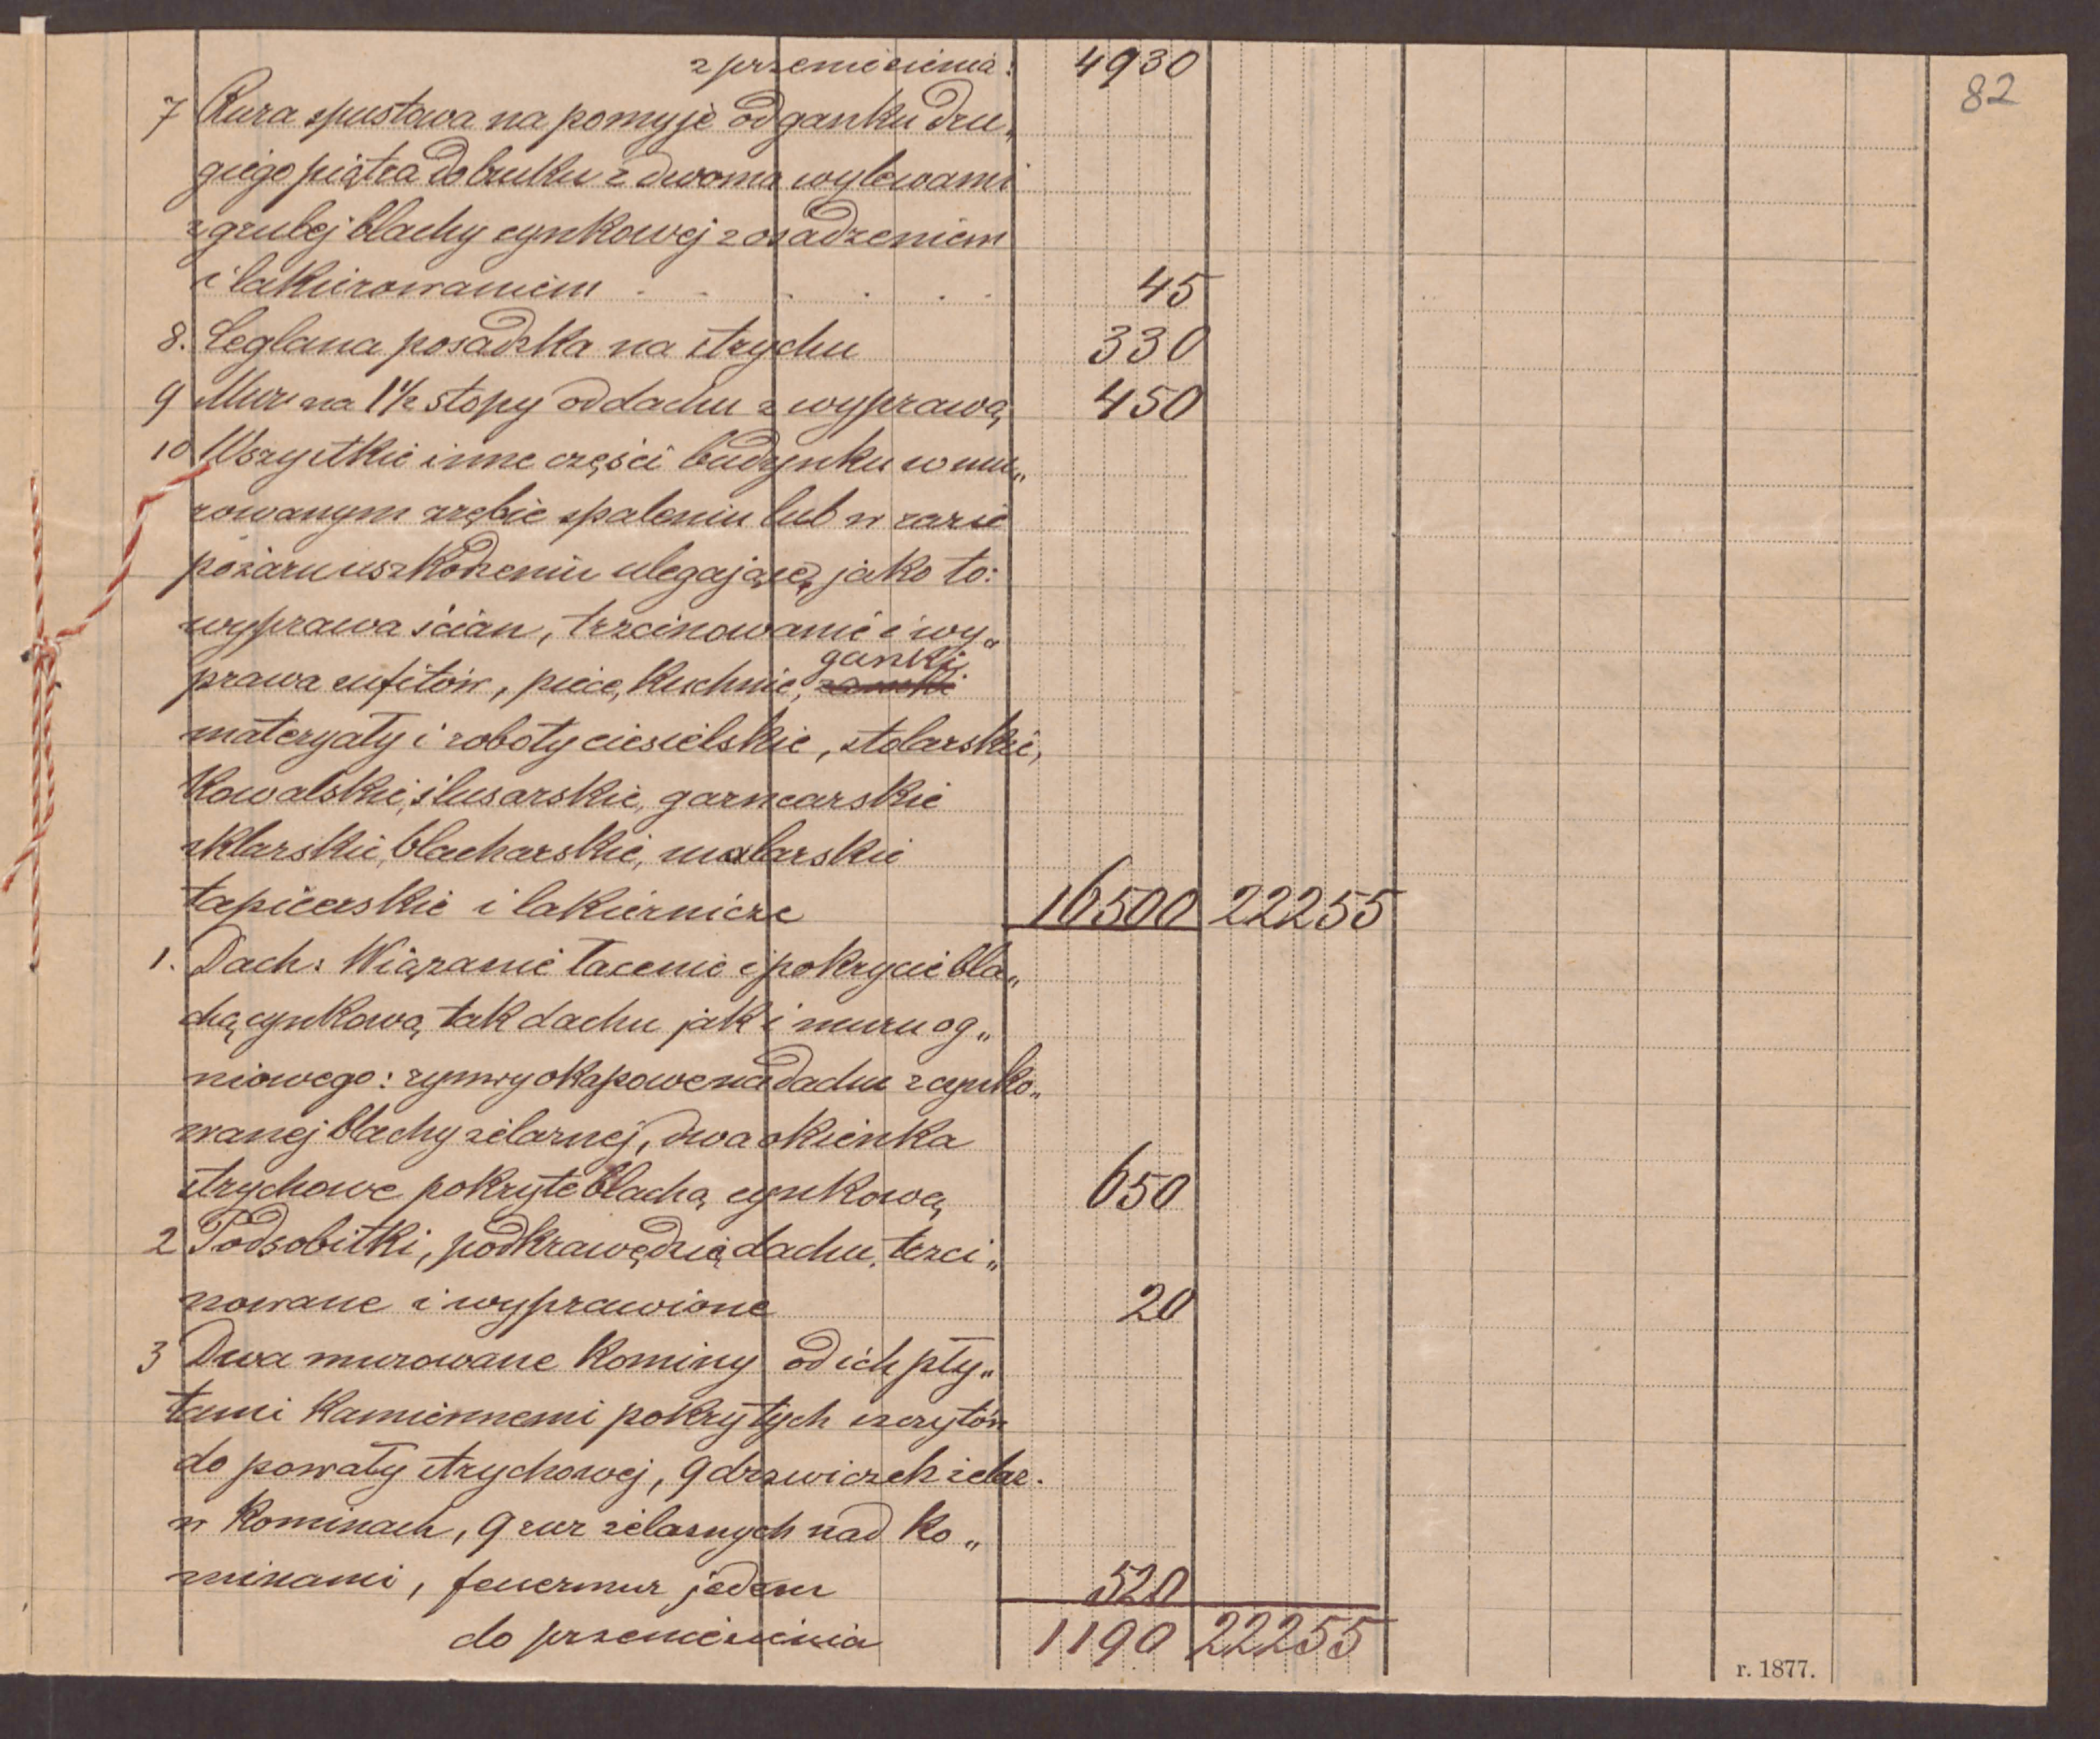 z przeniesienia: 4930
82
7 Rura spustowa na pomyje od ganku dru„
giego piątra do bruku z dwoma wylewami
z grubej blachy cynkowej z osadzeniem
i lakierowaniem . . . . . 45
8. Ceglana posadzka na strychu 330
9 Mur na 1 1/2 stopy od dachu z wyprawą 450
10 Wszystkie inne części budynku w mu„
rowanym zrębie spaleniu lub w razie
pożaru uszkodzeniu ulegające, jako to:
wyprawa ścian, trzcinowanie i wy„
ganki,
prawa sufitów, piece, kuchnie,
materyały i roboty ciesielskie, stolarskie,
kowalskie, ślusarskie, garncarskie
szklarskie, blacharskie, malarskie
tapicerskie i lakiernicze 16500 22255
1. Dach: Wiązanie łacenie i pokrycie bla„
chą cynkową tak dachu jak i muru og„
niowego: rynwy okapowe na dachu z cynko„
wanej blachy żelaznej, dwa okienka
strychowe pokryte blachą cynkową 650
2 Podsobitki, pod krawędzią dachu, trzci„
nowane i wyprawione 20
3 Dwa murowane kominy od ich pły„
tami kamiennemi pokrytych szczytów
do powały strychowej, 9 drzwiczek żelaz.
w kominach, 9 rur żelaznych nad ko„
minami, feuermur jeden 520
do przeniesienia 1190 22255
r. 1877.